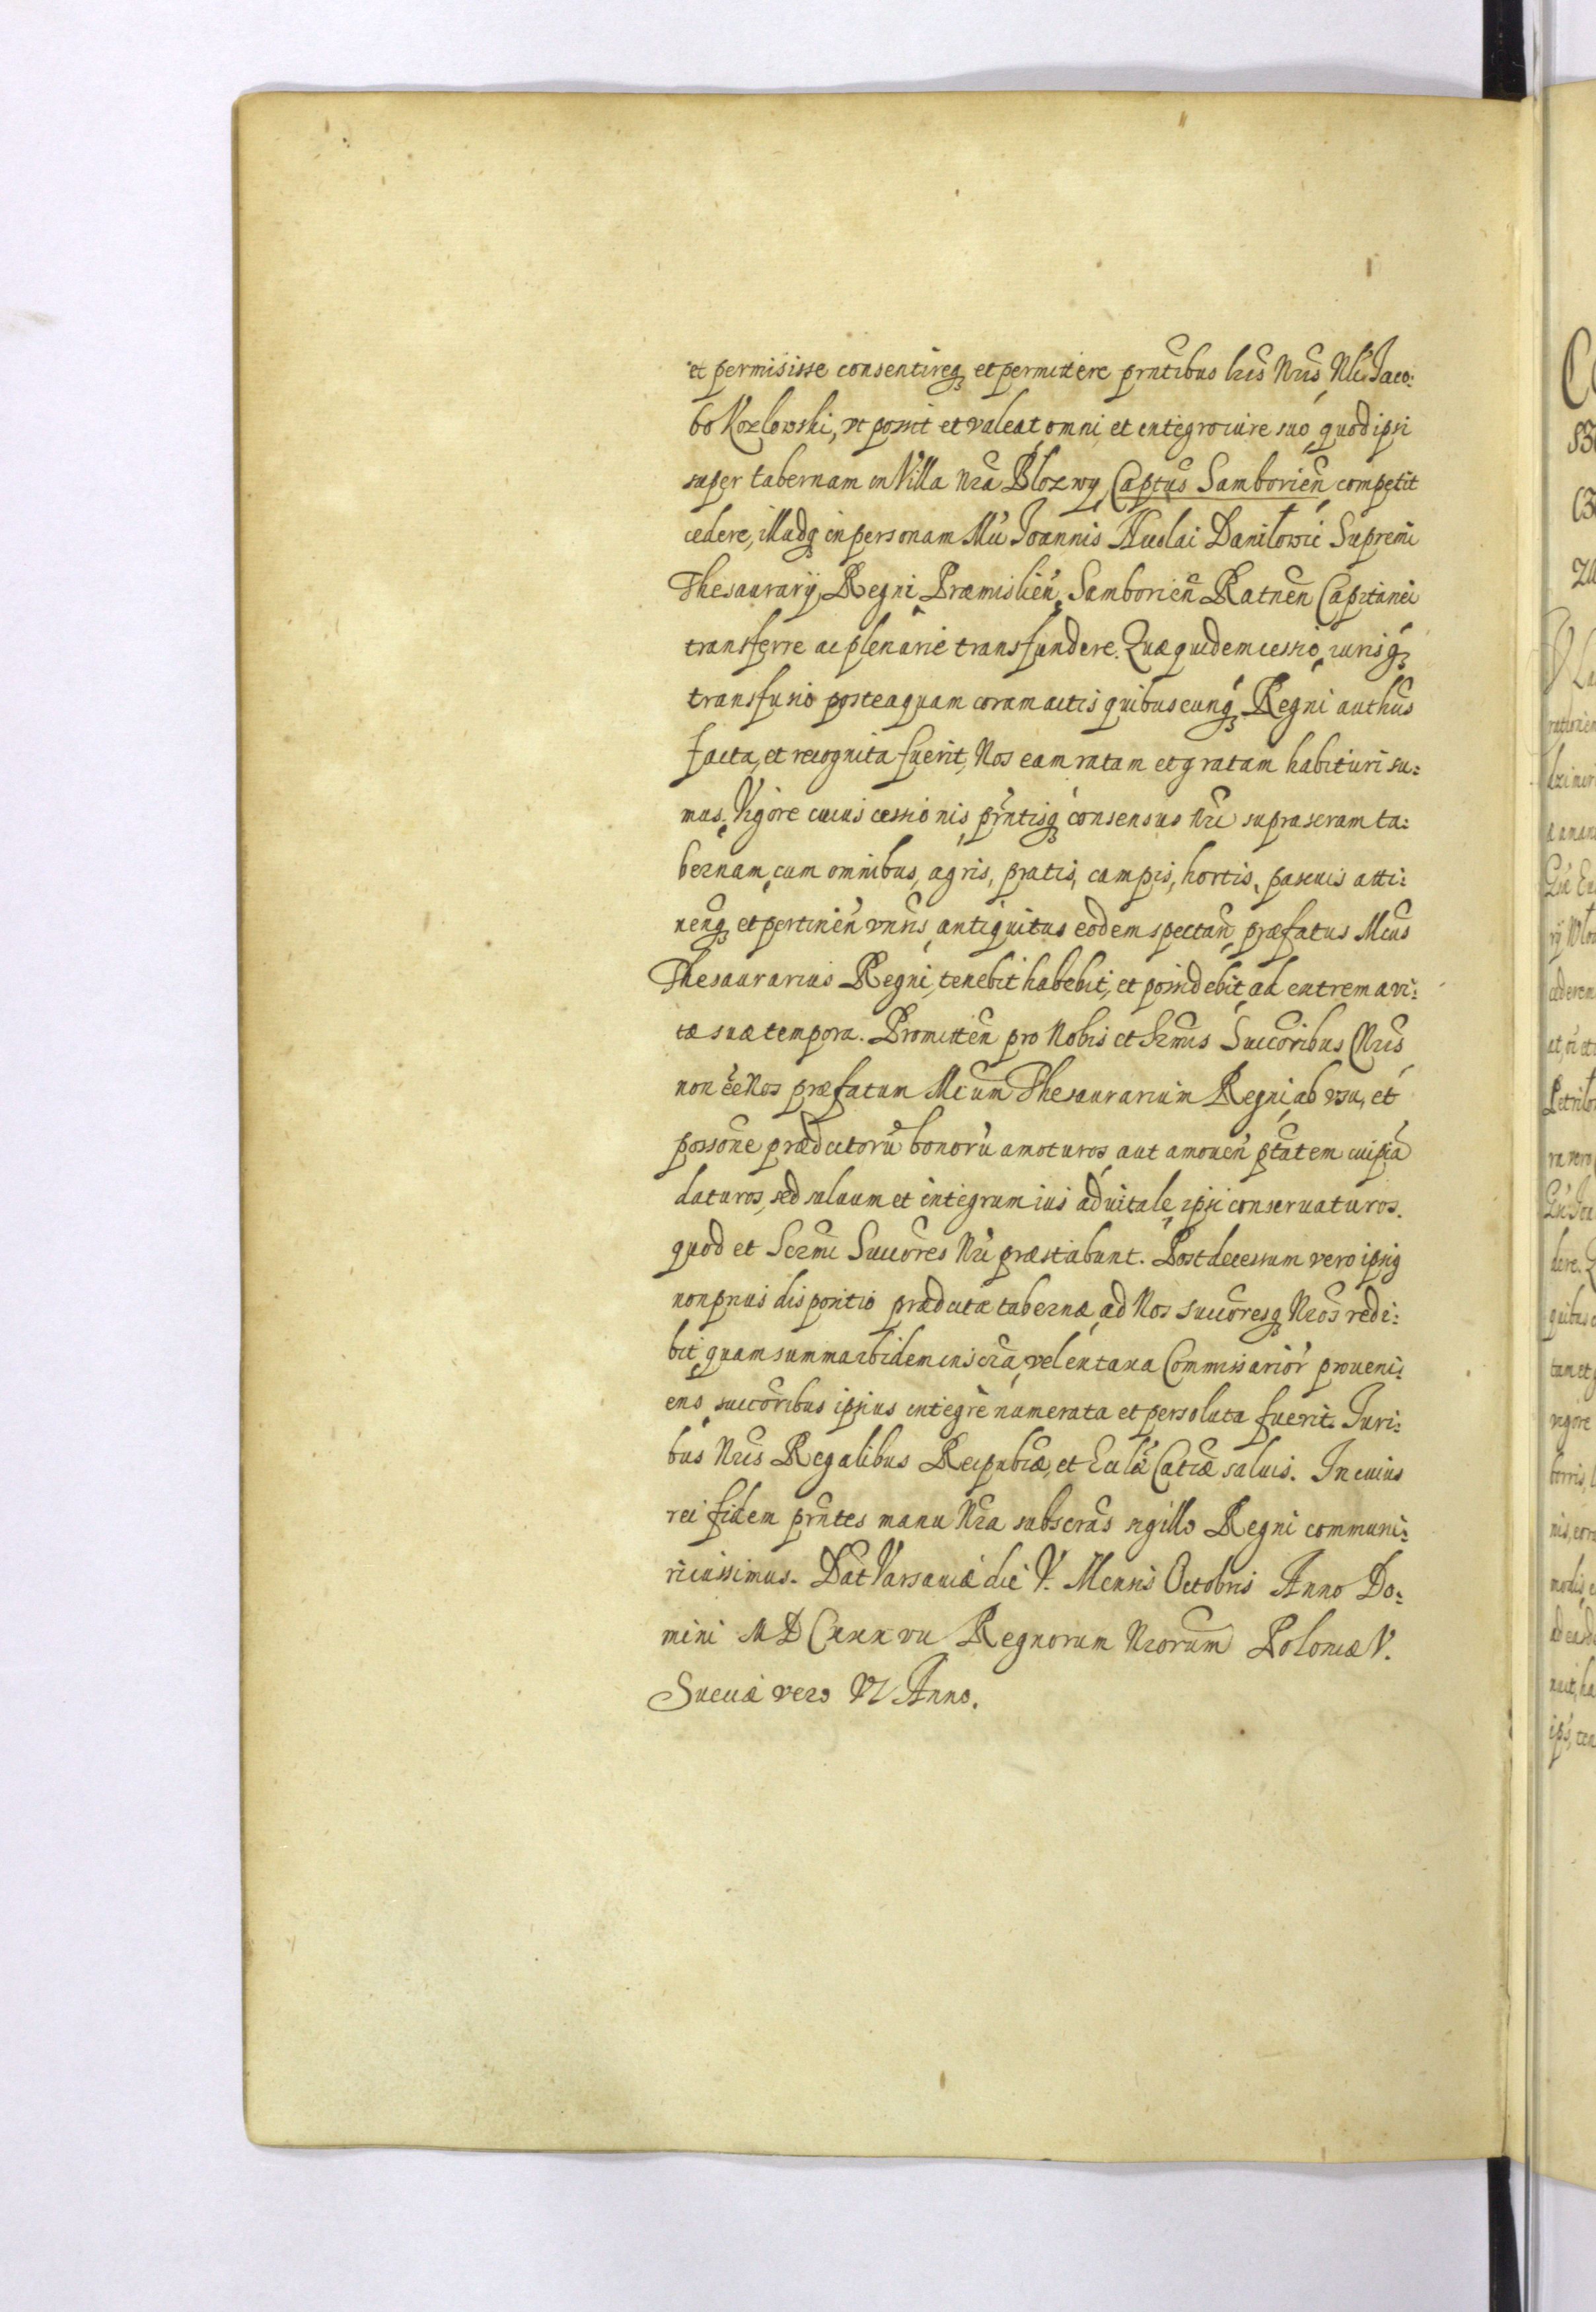 et permisisse consentireq₃ et permittere prntibus lris Nris, Nli Jaco:
bo Kozlowski, vt possit et valeat omni et integro iure suo, quod ipsi
super tabernam in Villa Nra Blozwy Captus Samborien competit
cedere, illudq₃ in personam Mci Joannis Nicolai Daniłowic Supremi
Thesaurarij Regni Præmislien, Samborien Ratnen Capitanei
transferre ac plenarie transfundere. Quæ quidem cessio, iurisq₃
transfusio posteaquam coram actis quibuscunq₃ Regni authus
facta, et recognita fuerit, Nos eam ratam et gratam habituri su:
mus. Vigore cuius cessionis, prntisq₃ consensus Nri suprascram ta:
bernam, cum omnibus, agris, pratis, campis, hortis, pascuis atti:
nenq₃ et pertinen vnsis antiquitus eodem spectan, præfatus Mcus
Thesaurarius Regni, tenebit habebit, et possidebit ad extrema vi:
tæ suæ tempora. Promitten pro Nobis et Srmis Succoribus Nris
non ee Nos præfatum Mcum Thesaurarium Regni, ab vsu, et
possone prædictorū bonorū amoturos, aut amouen ptatem cuipiā
daturos, sed saluum et integrum ius aduitale, ipsi conseruaturos.
quod et Sermi Succores Nri præstabunt. Post decessum vero ipsiq
non prius dispositio prædictæ tabernæ, ad Nos succoresq₃ Nros redi:
bit, quam summa ibidem inscra, vel ex taxa Commissarior proueni:
ens, succoribus ipsius integrè numerata et persoluta fuerit. Juri:
bus Nris Regalibus Reipubcæ, et Ecclæ Catcæ saluis. In cuius
rei fidem prntes manu Nra subscras sigillo Regni communi:
ri iussimus. Dat Varsauiæ die V. Mensis Octobris Anno Do:
mini MDCxxxvii Regnorum Nrorum Poloniæ V.
Sueciæ vero VI Anno.